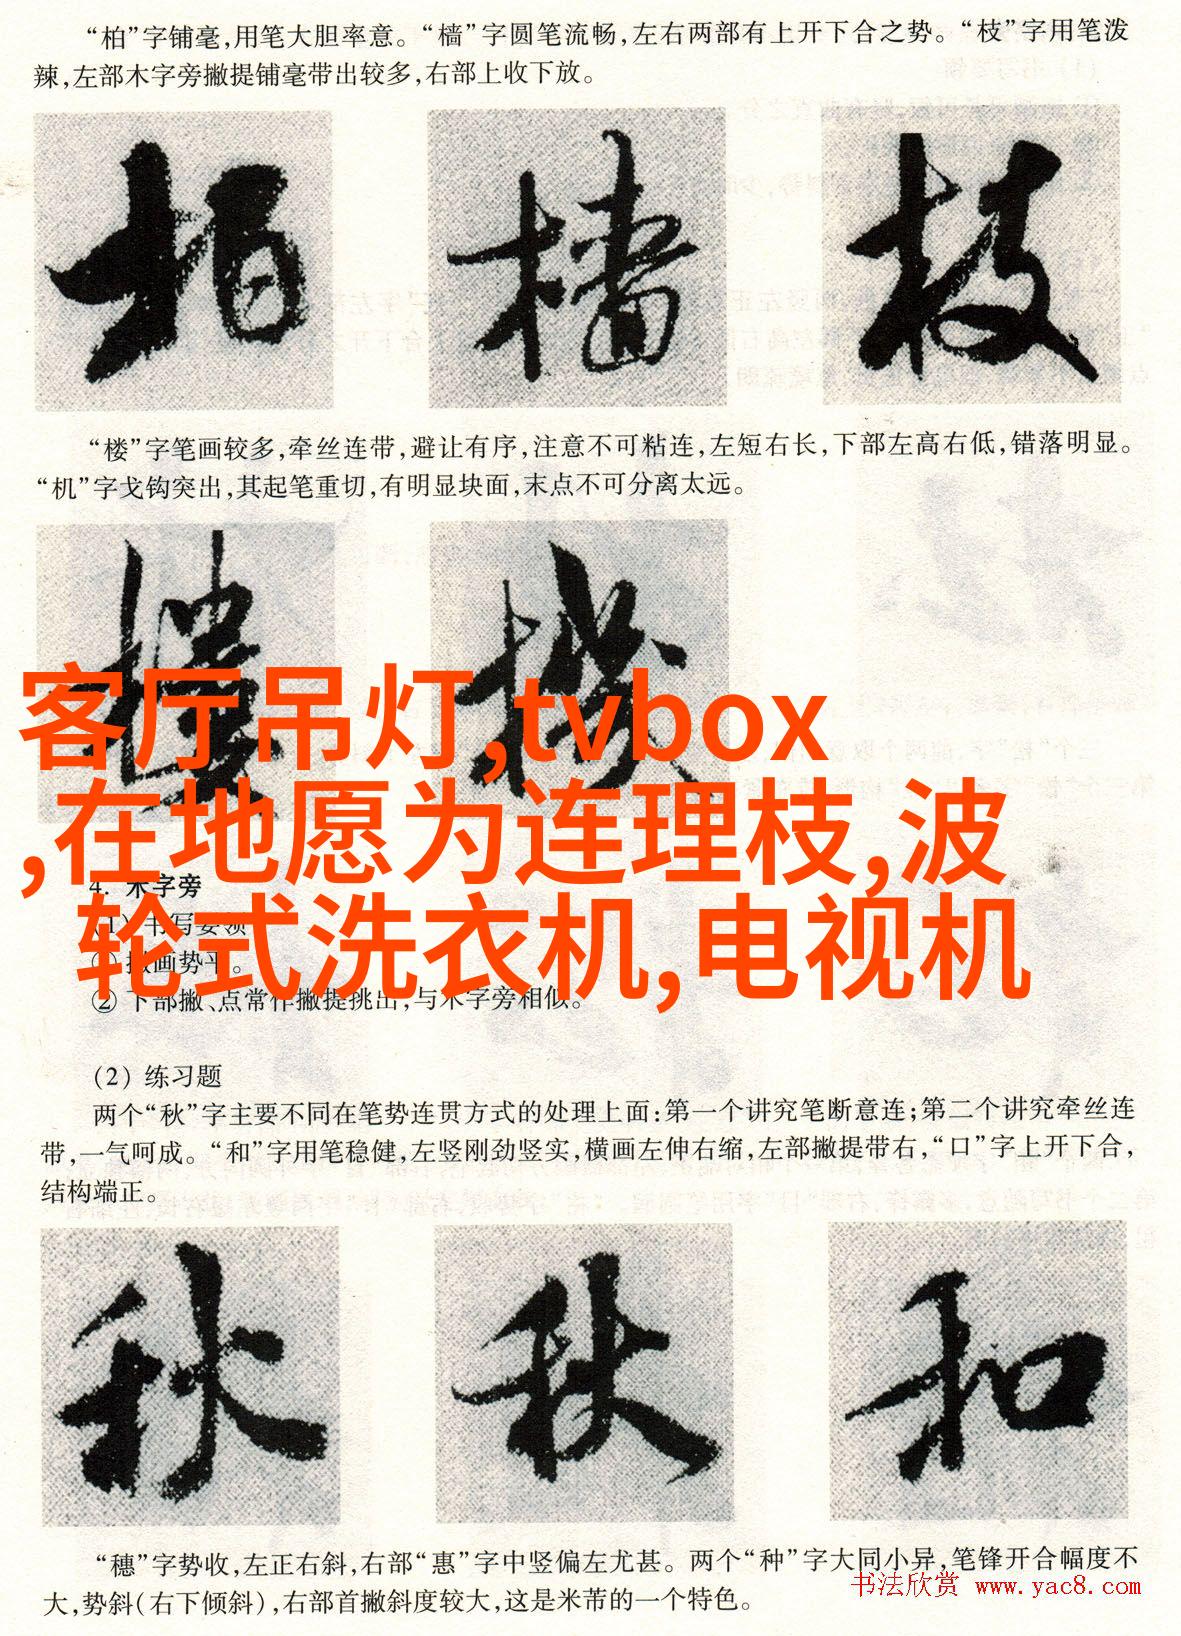 “柏”字铺毫,用笔大胆率意。“樯”字圆笔流畅,左右两部有上开下合之势。“枝”字用笔泼
辣,左部木字旁撇提铺毫带出较多,右部上收下放。
柏 樯 枝
“楼”字笔画较多,牵丝连带,避让有序,注意不可粘连,左短右长,下部左高右低,错落明显。
“机”字戈钩突出,其起笔重切,有明显块面,末点不可分离太远。
樓 機
客厅吊灯,tvbox
,在地愿为连理枝,波
轮式洗衣机,电视机
4. 禾字旁
(1) 书写要领
① 撇画势平。
② 下部撇、点常作撇提挑出,与木字旁相似。
(2) 练习题
两个“秋”字主要不同在笔势连贯方式的处理上面:第一个讲究笔断意连;第二个讲究牵丝连
带,一气呵成。“和”字用笔稳健,左竖刚劲竖实,横画左伸右缩,左部撇提带右,“口”字上开下合,
结构端正。
秋 秋 和
“穗”字势收,左正右斜,右部“惠”字中竖偏左尤甚。两个“种”字大同小异,笔锋开合幅度不
大,势斜(右下倾斜),右部首撇斜度较大,这是米芾的一个特色。
书法欣赏 www.yac8.com